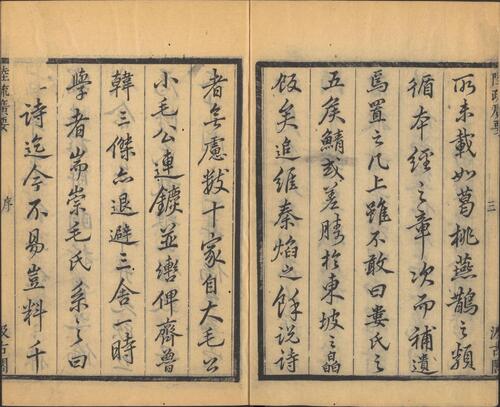 陸疏廣要
三
汲古閣
所未載如葛桃燕鵲之類
循本經之章次而補遺
焉置之几上雖不敢曰婁氏之
五侯鯖或差勝扵東坡之皛
飯矣追維秦焰之餘說詩
者無慮數十家自大毛公
小毛公連鑣並轡俾齊魯
韓三傑亦退避三舍一時
學者耑崇毛氏系之曰
詩迄今不易豈料千
陸疏廣要
序
汲古閣